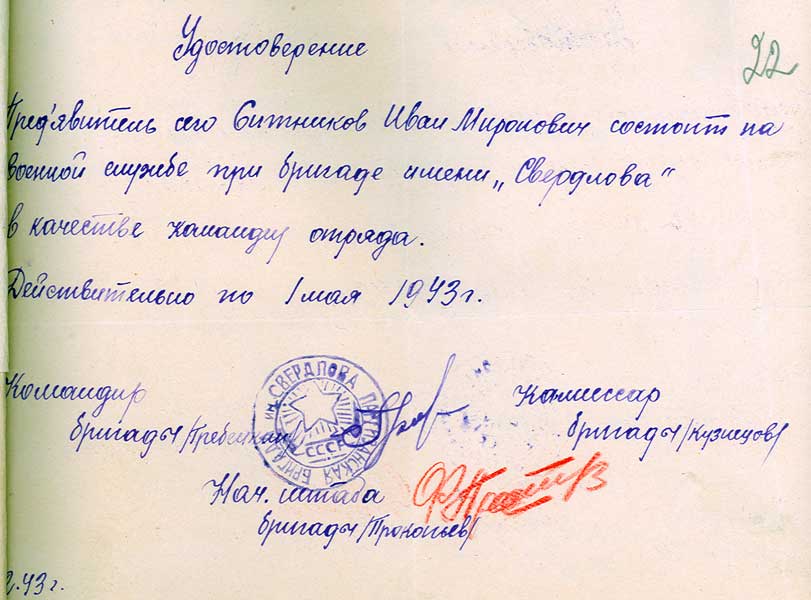 Удостоверение
22
Пред'явитель сего Ситников Иван Миронович состоит на
военной службе при бригаде имени „Свердлова"
в качестве командир отряда.
Действительно по 1 мая 1943 г.
Командир
бригады
Комиссар
бригады /Кузнецов/
БРИГАДА ИМ. СВЕРДЛОВА ПАРТИЗАНСКАЯ
СССР
Нач. штаба
бригады /Прокопьев/
2.43 г.